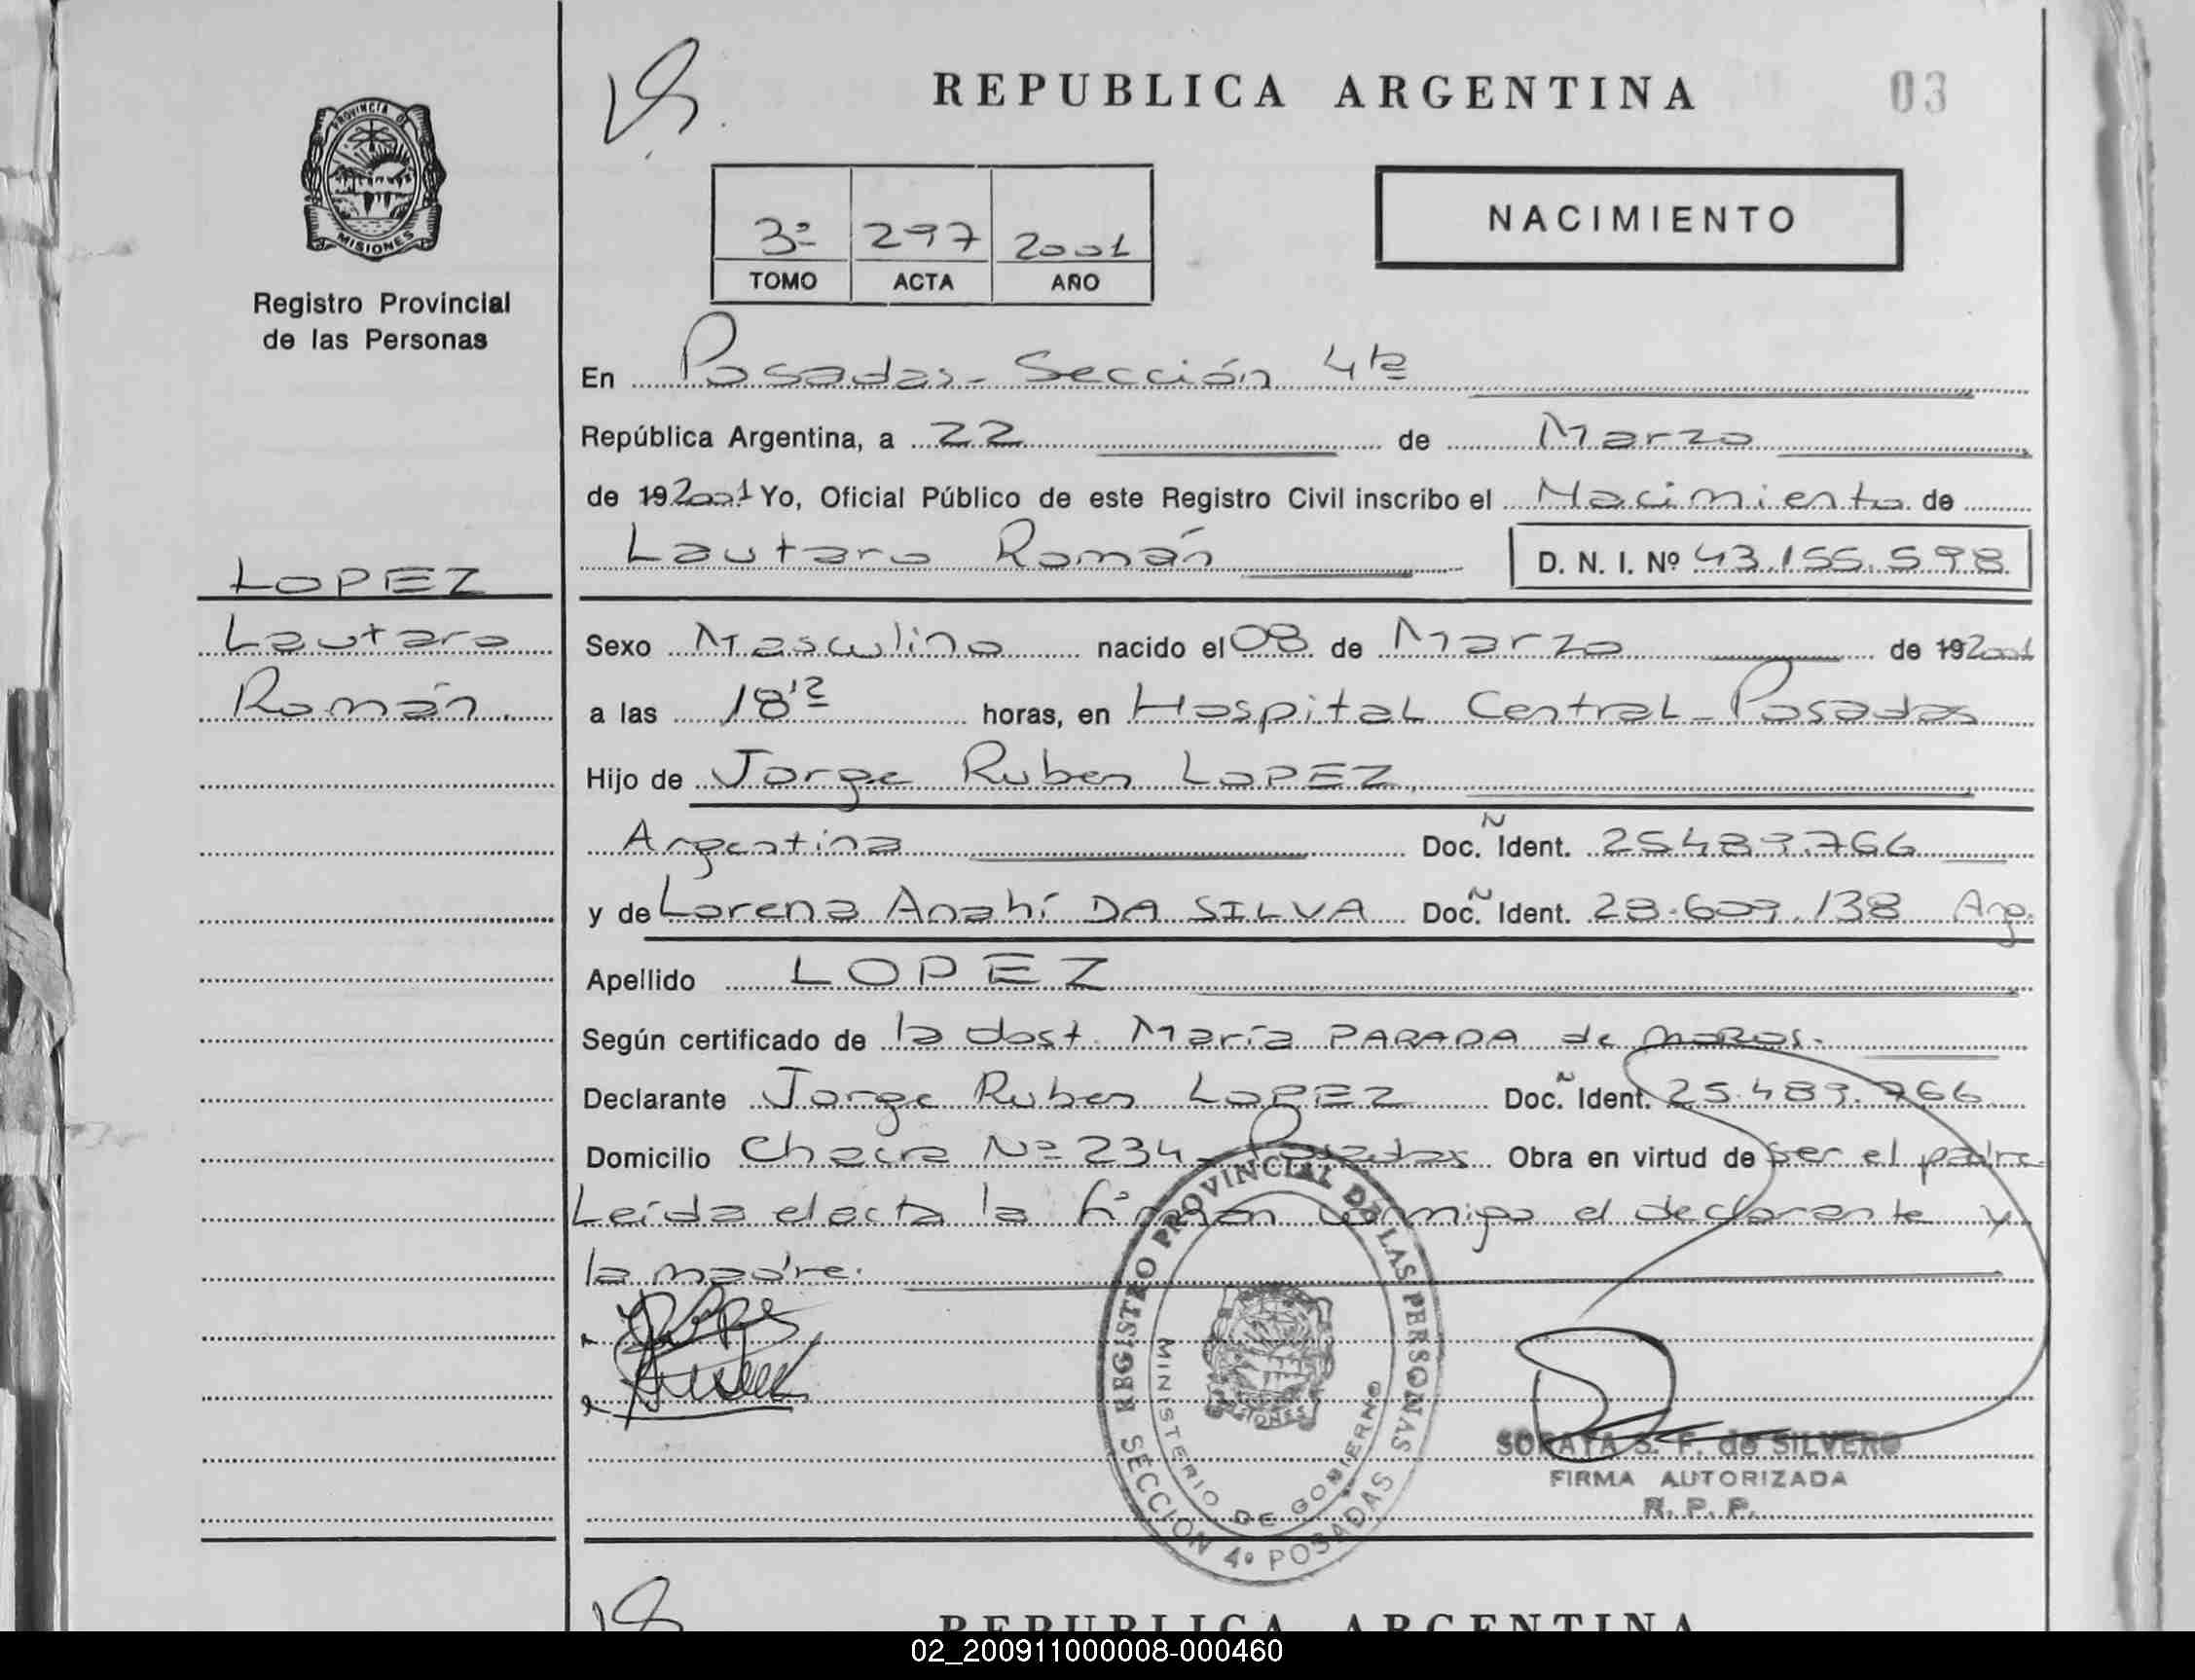 REPUBLICA ARGENTINA
03
PROVINCIA D
MISIONES
Registro Provincial
de las Personas
3º 297 2001
TOMO ACTA AÑO
NACIMIENTO
En Posadas - Sección 4ta
República Argentina, a 22 de Marzo
de 19 2001 Yo, Oficial Público de este Registro Civil inscribo el Nacimiento de
Lautaro Román D. N. I. Nº 43.155.598
LOPEZ
Lautaro
Román.
Sexo Masculino nacido el 08 de Marzo de 19 2001
a las 18'12 horas, en Hospital Central - Posadas
Hijo de Jorge Ruben LOPEZ,
Argentina Doc. Ñ Ident. 25.489.766
y de Lorena Anahí DA SILVA Doc. Ñ Ident. 28.609.138 Arg.
Apellido LOPEZ
Según certificado de la obst. María PARADA de
Declarante Jorge Ruben LOPEZ Doc. Ñ Ident. 25.489.766
Domicilio Chacra Nº 234 - Posadas Obra en virtud de ser el padre
Leída el acta la firman conmigo el declarante y
la madre.
REGISTRO PROVINCIAL DE LAS PERSONAS
MINISTERIO DE GOBIERNO
MISIONES
SECCION 4º POSADAS
SORAYA S. F. de SILVERO
FIRMA AUTORIZADA
R. P. P.
REPUBLICA ARGENTINA
02_200911000008-000460